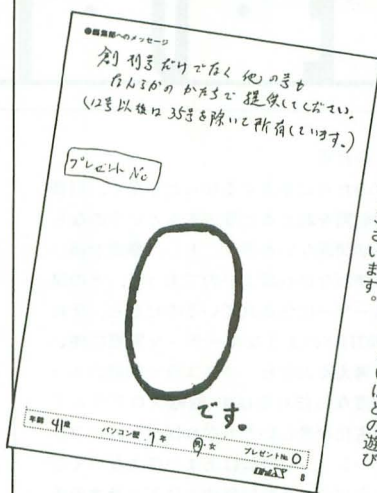 ●編集部へのメッセージ
創刊号だけでなく他の号も
なんらかのかたちで提供してください。
(12号以後は35号を除いて所有しています。)
プレゼント No
0
です。
年齢 41歳 パソコン歴 7年 男・女 プレゼントNo. 0
Oh!X 8
ございます。
ほどの遊び